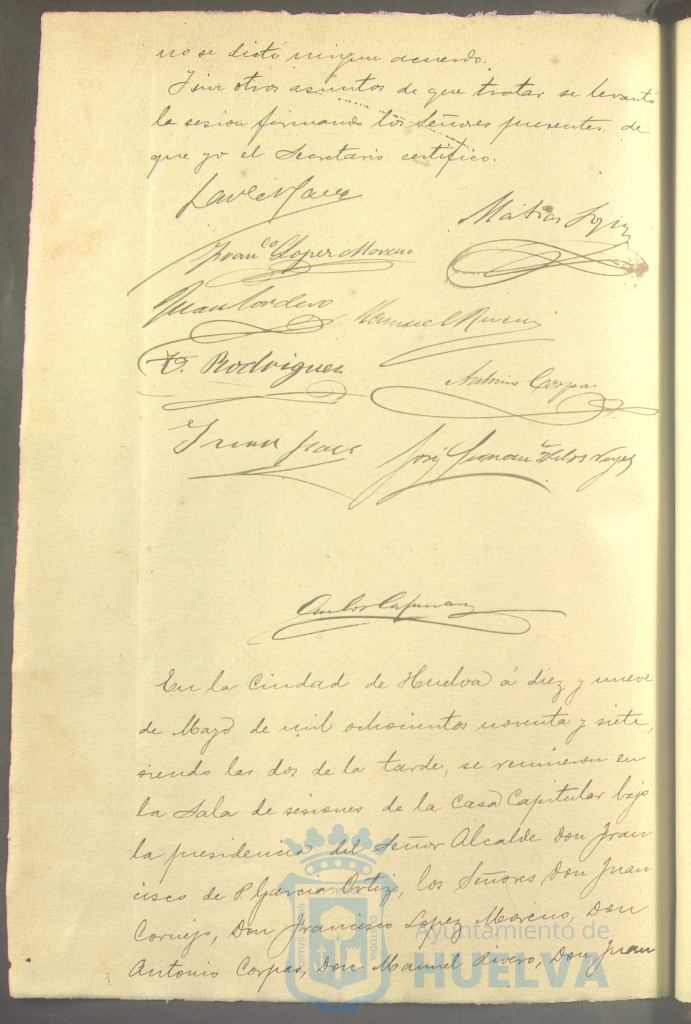 no se dictó ningun acuerdo.
Y sin otros asuntos de que tratar se levantó
la sesion firmando los Señores presentes de
que yo el Secretario certifico.
Matias
Franco Lopez Moreno
Juan Cordero Manuel Rivero
Rodriguez
Antonio Corpas
Juan
José de los Reyes
Carlos
En la Ciudad de Huelva á diez y nueve
de Mayo de mil ochocientos noventa y siete,
siendo las dos de la tarde, se reunieron en
la Sala de sesiones de la Casa Capitular bajo
la presidencia del Señor Alcalde Don Fran
cisco de P. Garcia Ortiz, los Señores Don Juan
Cornejo, Don Francisco Lopez Moreno, Don
Antonio Corpas, Don Manuel Rivero, Don Juan
PORTUS CUSTODIA
Ayuntamiento de
HUELVA